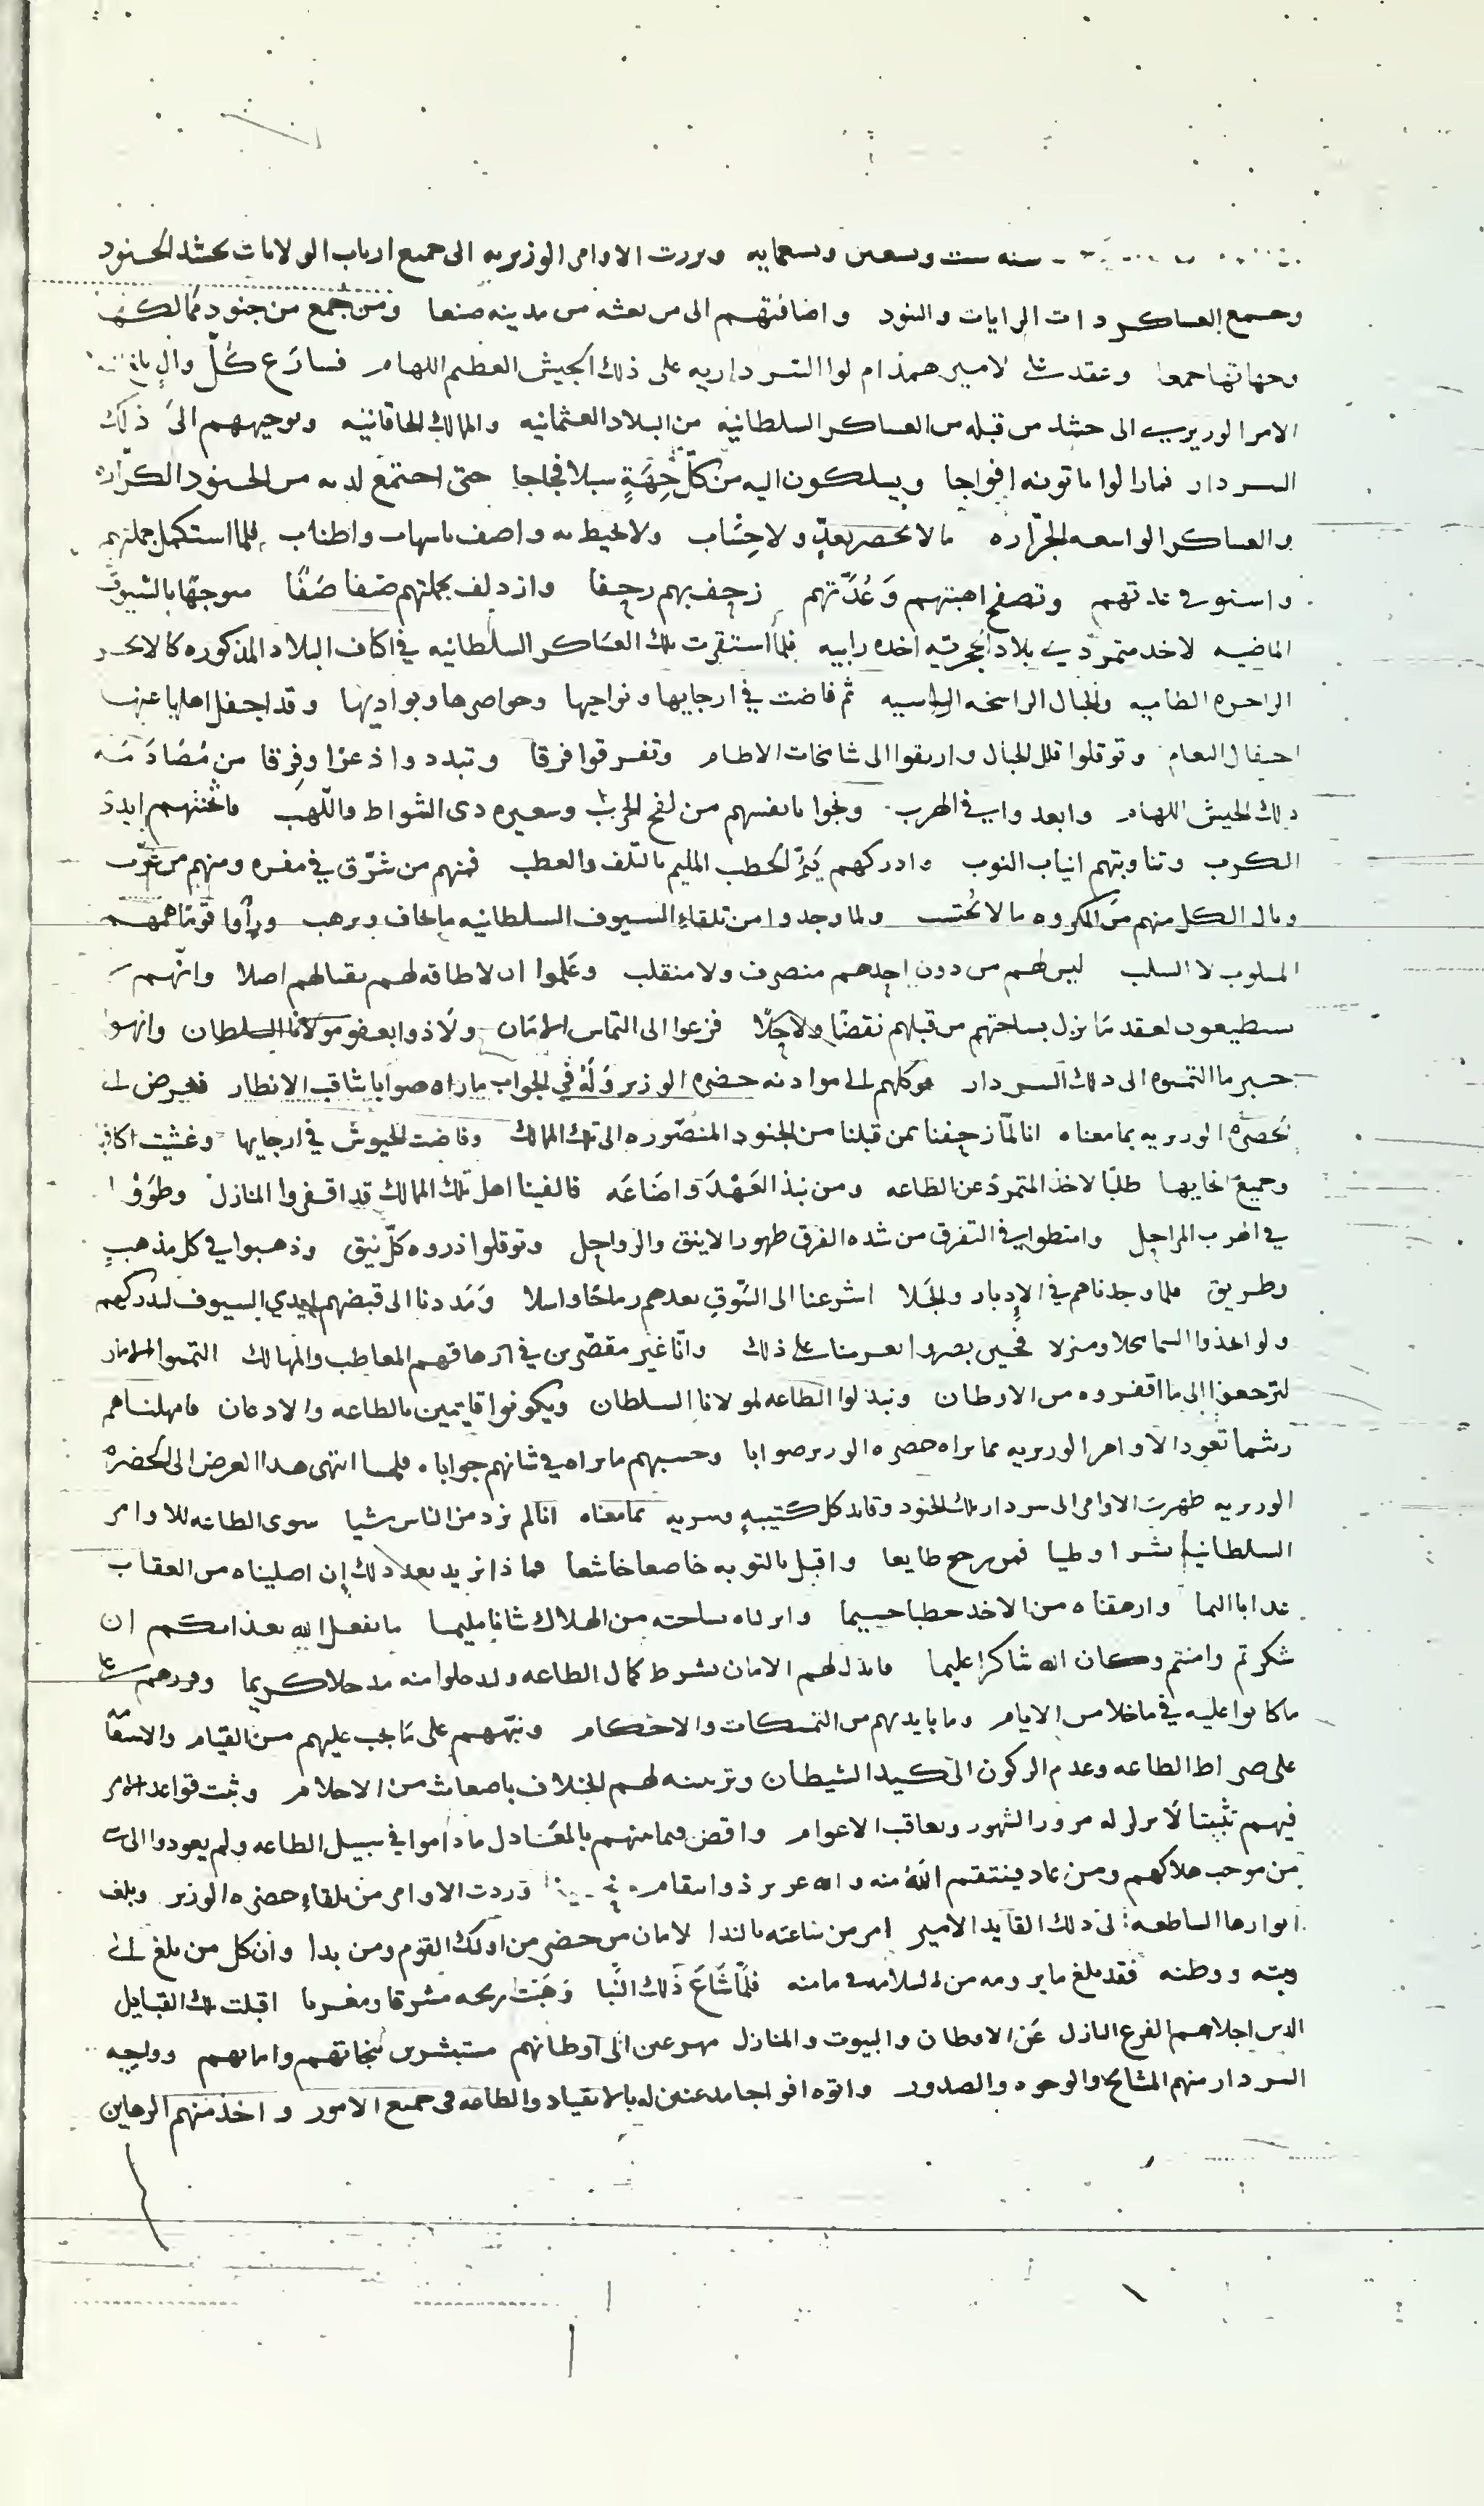 سنه ست وسعين وسعمايه وبررت الاوامر الوزيريه الى جميع ارباب الولايات بحشد الجنود
وجمع العساكر ذات الرايات والبنود واضافتهم الى من بعثه من مدينه صنعا ومن جُمع من جنود ممالكها
وجهاتها جمعا وعقد على لامير همذام لوا السرداريه على ذلك الجيش العظيم اللهام فسارَع كُلّ والٍ
الامر الوزيري الى حشد من قبله من العساكر السلطانيه من البلاد العثمانيه والممالك الخاقانيه وتوجيههم الى ذلك
السردار فمازالوا ياتونه افواجا ويسلكون اليه من كلّ جِهَةٍ سبلا فجاجا حتى اجتمع لديه من الجنود الكرّاره
والعساكر الواسعه الجرّاره مالا يحصر بعدٍّ ولا حِسَاب ولا يحيط به واصف باسهاب واطناب فلما استكمل جملتهم
واستوفى عدتهم وتصفح اهبتهم وَعُدَّتهم زحف بهم زحفا وازدلف بجملتهم صَفا صَفًا متوجهًا بالسيوف
الماضيه لاخذ متمردي بلاد الحجريه اخذه رابيه فلما استقرت تلك العسَاكر السلطانيه في اكناف البلاد المذكوره كالابحر
الزاخره الطاميه والجبال الراسخه الراسيه ثم فاضت في ارجايها ونواحيها وحواضرها وبواديها وقد اجفل اهلها عنها
اجفال النعام وتوقلوا قلل الجبال وارتقوا الى شامخات الاطام وتفرقوا فرقا وتبددوا ذعرًا وفِرقا من مُصَادَمَه
ذلك الجيش اللهام وابعدوا في الهرب ونجوا بانفسهم من لفح الحرب وسعيره ذى الشواظ واللّهب فانختهم ايدى
الكرب وتناوبتهم انياب النوب وادركهم الخطب المليم بالتّلف والعطب فمنهم من شرّق في مفره ومنهم من غرّب
ونال الكل منهم من المكروه ما لا يُحتسب ولما وجدوا من تلقاءِ السيوف السلطانيه ما يخاف ويرهب ورأوا قومًا همهم
المسلوب لا السلب ليس لهم من دون احدهم منصرف ولا منقلب وعَلموا ان لا طاقه لهم بقتالهم اصلا وانّهم
يستطيعون لعقد مَا نزل بساحتهم من قبلهم نقضًا ولا حلًا فزعوا الى التماس الامَان ولَاذوا بعفو مولانا السلطان وانهوا
خبر ما التمسوه الى ذلك السردار فوكلهم الى مواذنه حضره الوزير وَلَهُ في الجواب ما راه صوابا بثاقب الانظار فعرض الى
الحضره الوزيريه بما معناه انا لمّا زحفنا بمن قبلنا من الجنود المنصّوره الى تلك الممالك وفاضت الجيوش في ارجايها وغشيت اكنافها
وجميعَ انحايها طلبًا لاخذ المتمردّ عن الطاعه ومن نبذ العَهْدَ واضَاعَه فالفينا اهل تلك الممالك قد اقفروا المنازل وطوَوْا
في الهرب المراحل وامتطوا في التفرق من شده الفرق ظهور الاينق والرواحل وتوقلوا ذروه كلّ نيق وذهبوا في كل مذهبٍ
وطريق فلما وجدناهم في الإدبار والجَلا اشرعنا الى السَّوقِ بعدهم رماحًا واسلا وَمَددنا الى قبضهم ايدي السيوف لندركهم
ولو اتخذوا السما محلا ومنزلا فحين بصروا بعزمنا على ذلك وانّا غير مقصّرين في ازهاقهم المعاطب والمهالك التمسوا الامان
ليرجعوا الى ما اقفروه من الاوطان ويبذلوا الطاعه لمولانا السلطان ويكونوا قايمين بالطاعه والاذعان فامهلناهم
ريثما تعود الاوامر الوزيريه بما يراه حضره الوزير صوابا وحسبهم ما يراه في شانهم جوابا فلما انتهى هذا العرض الى الحضره
الوزيريه ظهرت الاوامر الى سردار تلك الجنود وقايد كل كتيبهٍ وسريه بما معناه انا لم نرد من الناس شيا سوى الطاعه للاوامر
السلطانيه نشرا وطيا فمن رجع طايعا واقبل بالتوبه خاضعا خاشعا فماذا نريد بعد ذلك إن اصليناه من العقاب
عذابا اليما وارهقناه من الاخذ خطبا جسيما وانزلناه بساحته من الهلاك شانا مليما ما يفعل الله بعذابكم ان
شكرتم وامنتم وكان الله شاكرا عليما فابذل لهم الامان بشرط كمال الطاعه وليدخلوا منه مدخلا كريما وقررهم على
ما كانوا عليه في ما خلا من الايام وما بايديهم من التمسكات والاحكام ونبّههم على مَا يجب عليهم من القيام والاستقامه
على صراط الطاعه وعدم الركون الى كيد الشيطان وتزيينه لهم الخلاف باضغاث من الاحلام وثبت قواعد الامر
فيهم تثبيتا لا يزلزله مرور الشهور وتعاقب الاعوام واقض فيما بينهم بالمعَادل ما داموا في سبيل الطاعه ولم يعودوا الى
من موجب هلاكهم ومن عاد فينتقم اللهُ منه والله عزيز ذو انتقام وَردت الاوامر من تلقاءِ حضره الوزير وبلغت
انوارها الساطعه الى ذلك القايد الامير امر من سَاعته بالندا لامان من حضر من اولئك القوم ومن بدا وأن كل من بلغ الى
بيته ووطنه فقد بلغ ما يرومه من السلامه في مامنه فلمّا شَاعَ ذَلك النّبا وَهَبّت ريحه مشرقا ومغربا اقبلت تلك القبايل
الذين اجلاهم الفزع النازل عَن الاوطان والبيوت والمنازل مهرعين الى اوطانهم مستبشرين بنجاتهم وامانهم وواجه
السردار منهم المشايخ والوجوه والصدور واتوه افواجا مذعنين له بالانقياد والطاعه في جميع الامور واخذ منهم الرهاين